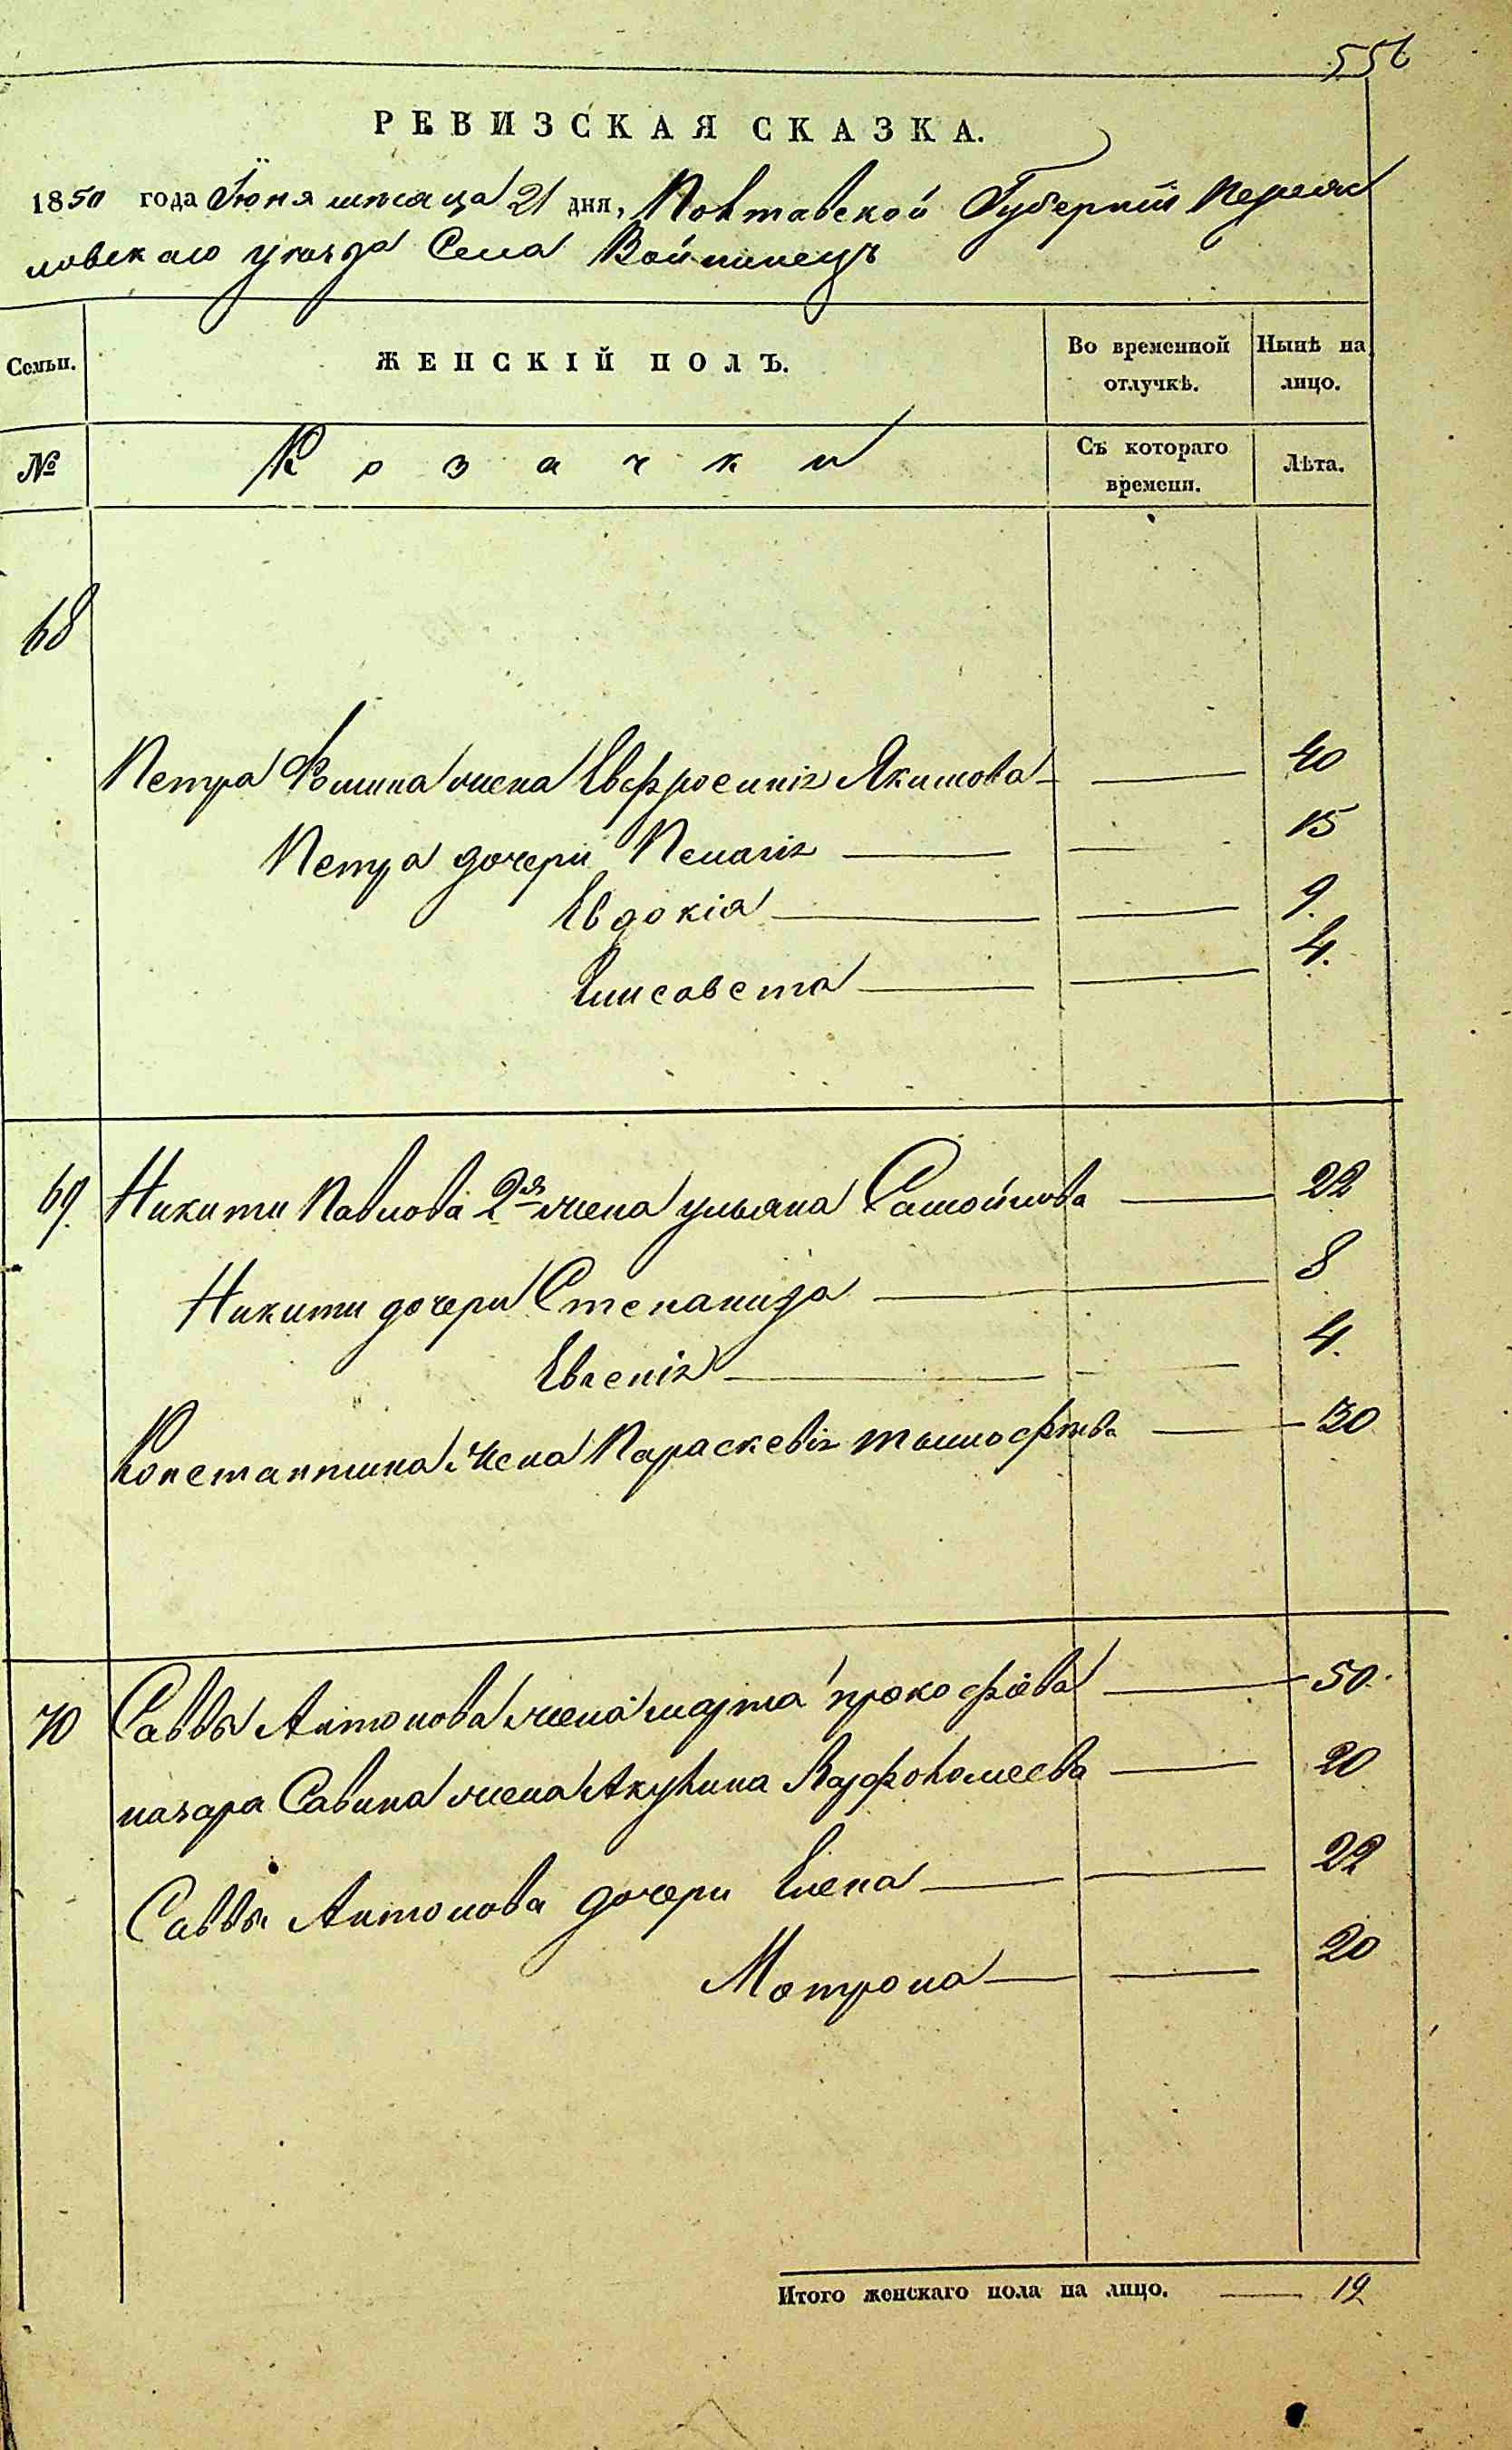 556
РЕВИЗСКАЯ СКАЗКА.
1850 года Іюня мѣсяца 21 дня, Полтавской Губерніи Переяс
ловскаго уѣзда Села Войтинецъ
Семьи.
ЖЕНСКІЙ ПОЛЪ.
Во временной отлучкѣ.
Нынѣ на лицо.
№
Козачки
Съ котораго времени.
Лѣта.
68
Петра Фомина жена Евфросинія Якимова 40
Петра дочери Пелагія 15
Евдокія 9.
Елисавета 4.
69. Никити Павлова 2я жена ульяна Самойлова 22
Никити дочери Степанида 8
Евгенія 4.
Константина жена Параскевія тимофѣва 30
70 Саввы Антонова жена марта прокофіева 50.
назара Савина жена Акулина Варфоломеева 20
Саввы Антонова дочери Елена 22
Мотрона 20
Итого женскаго пола на лицо. 12